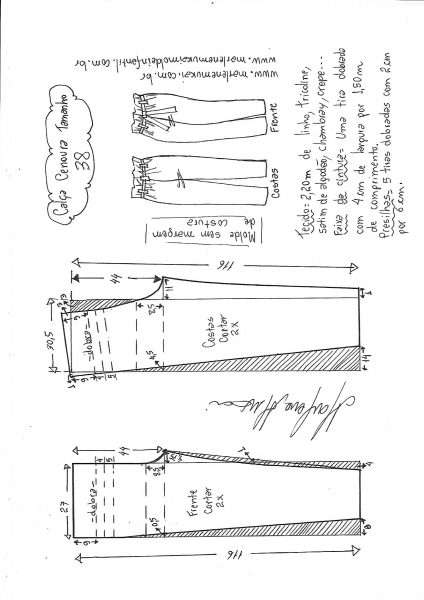 Calça Cenoura Tamanho
38
www.marlenemukai.com.br
www.marlenemukaimoldeinfantil.com.br
Frente
Costas
Tecido = 2,20m de linho, tricoline,
satim de algodão, chambray, crepe...
Faixa de cintura = Uma tira dobrada
com 4 cm de largura por 1,50m
de comprimento.
Presilhas = 5 tiras dobradas com 2 cm
por 6 cm.
Molde sem margem
de costura
116
44
30,5
-dobra-
11
Costas
Cortar
2x
14
116
44
27
-dobra-
Frente
Cortar
2x
8